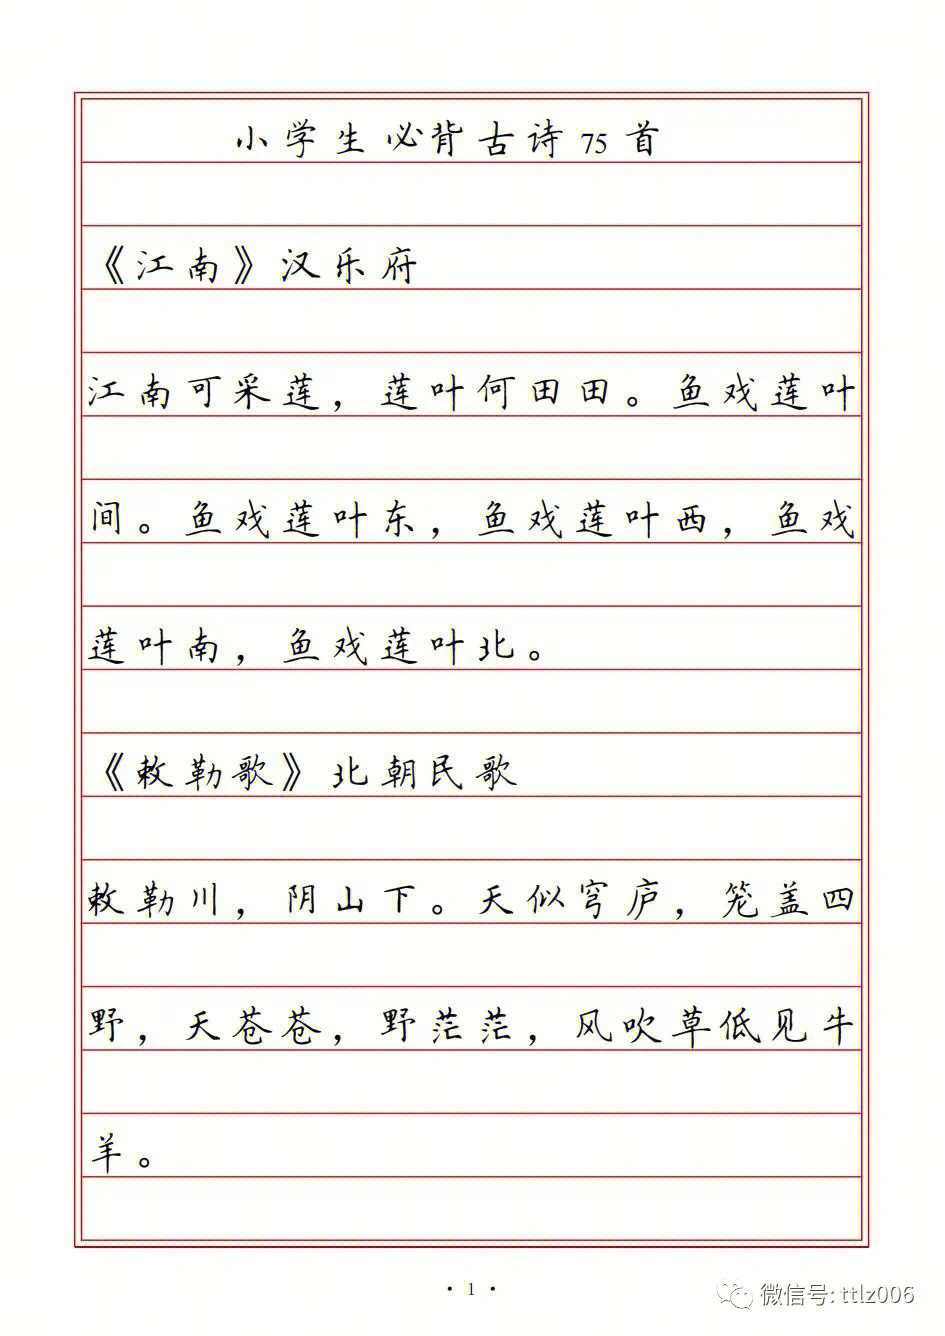 小学生必背古诗75首
《江南》汉乐府
江南可采莲，莲叶何田田。鱼戏莲叶
间。鱼戏莲叶东，鱼戏莲叶西，鱼戏
莲叶南，鱼戏莲叶北。
《敕勒歌》北朝民歌
敕勒川，阴山下。天似穹庐，笼盖四
野，天苍苍，野茫茫，风吹草低见牛
羊。
·1·
微信号: ttlz006